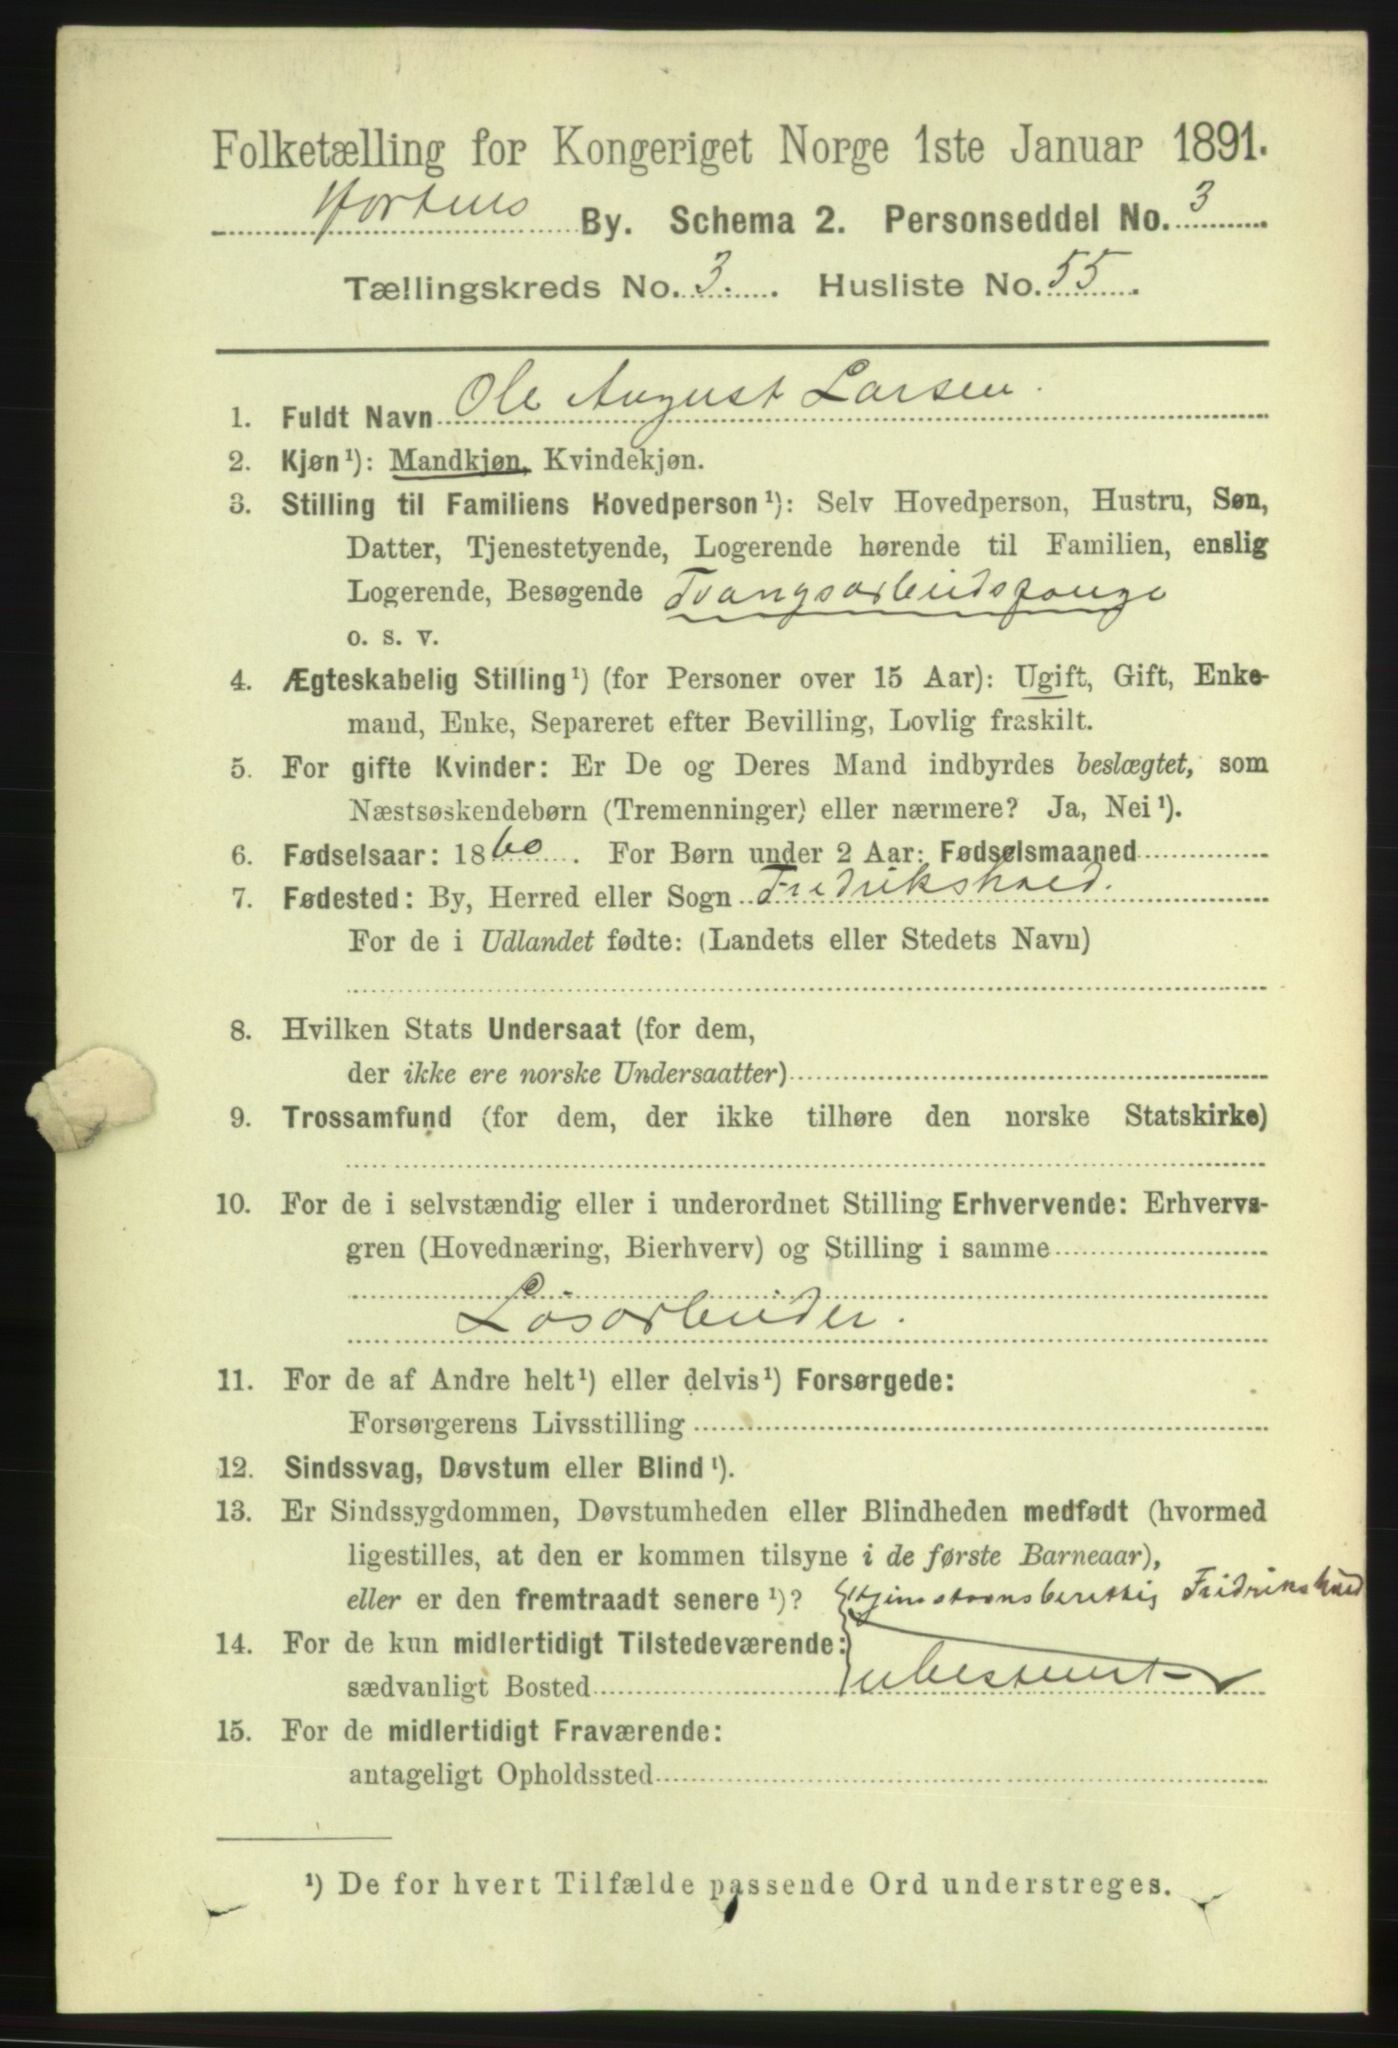 Folketælling for Kongeriget Norge 1ste Januar 1891.
Hortens By. Schema 2. Personseddel No. 3
Tællingskreds No. 3. Husliste No. 55
1. Fuldt Navn Ole August Larsen.
2. Kjøn¹): Mandkjøn, Kvindekjøn.
3. Stilling til Familiens Hovedperson¹): Selv Hovedperson, Hustru, Søn,
Datter, Tjenestetyende, Logerende hørende til Familien, enslig
Logerende, Besøgende Tvangsarbeidsfange
o. s. v.
4. Ægteskabelig Stilling¹) (for Personer over 15 Aar): Ugift, Gift, Enke-
mand, Enke, Separeret efter Bevilling, Lovlig fraskilt.
5. For gifte Kvinder: Er De og Deres Mand indbyrdes beslægtet, som
Næstsøskendebørn (Tremenninger) eller nærmere? Ja, Nei¹).
6. Fødselsaar: 1860. For Børn under 2 Aar: Fødselsmaaned
7. Fødested: By, Herred eller Sogn Fredrikshald.
For de i Udlandet fødte: (Landets eller Stedets Navn)
8. Hvilken Stats Undersaat (for dem,
der ikke ere norske Undersaatter)
9. Trossamfund (for dem, der ikke tilhøre den norske Statskirke)
10. For de i selvstændig eller i underordnet Stilling Erhvervende: Erhvervs-
gren (Hovednæring, Bierhverv) og Stilling i samme
Løsarbeider.
11. For de af Andre helt¹) eller delvis¹) Forsørgede:
Forsørgerens Livsstilling
12. Sindssvag, Døvstum eller Blind¹).
13. Er Sindssygdommen, Døvstumheden eller Blindheden medfødt (hvormed
ligestilles, at den er kommen tilsyne i de første Barneaar),
eller er den fremtraadt senere¹)? Hjemstavnsberettig Fridrikshald
14. For de kun midlertidigt Tilstedeværende:
sædvanligt Bosted ubestemt
15. For de midlertidigt Fraværende:
antageligt Opholdssted
¹) De for hvert Tilfælde passende Ord understreges.